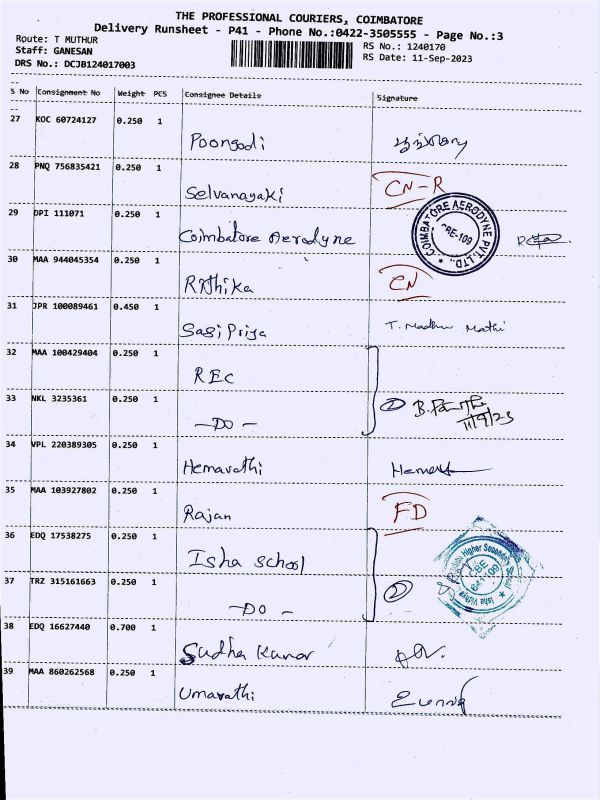 THE PROFESSIONAL COURIERS, COIMBATORE
Delivery Runsheet - P41 - Phone No.:0422-3505555 - Page No.:3
Route: T MUTHUR
Staff: GANESAN
DRS No.: DCJB124017003
RS No.: 1240170
RS Date: 11-Sep-2023
S No Consignment No Weight PCS Consignee Details Signature
27 KOC 60724127 0.250 1
Poongodi
28 PNQ 756835421 0.250 1
Selvanayaki CN-R
29 DPI 111071 0.250 1
Coimbatore Aerodyne
COIMBATORE AERODYNE PVT. LTD.
CBE-109
30 MAA 944045354 0.250 1
Rithika CN
31 JPR 100089461 0.450 1
Sasi Priya T. Madhu Mathi
32 MAA 100429404 0.250 1
REC
33 NKL 3235361 0.250 1
-DO- 2 B.
11/9/23
34 VPL 220389305 0.250 1
Hemavathi
35 MAA 103927802 0.250 1
Rajan FD
36 EDQ 17538275 0.250 1
Isha school
Higher Secondary School
Isha Vidhya
37 TRZ 315161663 0.250 1
-DO- 2
38 EDQ 16627440 0.700 1
Sudha Kumar
39 MAA 860262568 0.250 1
Umavathi